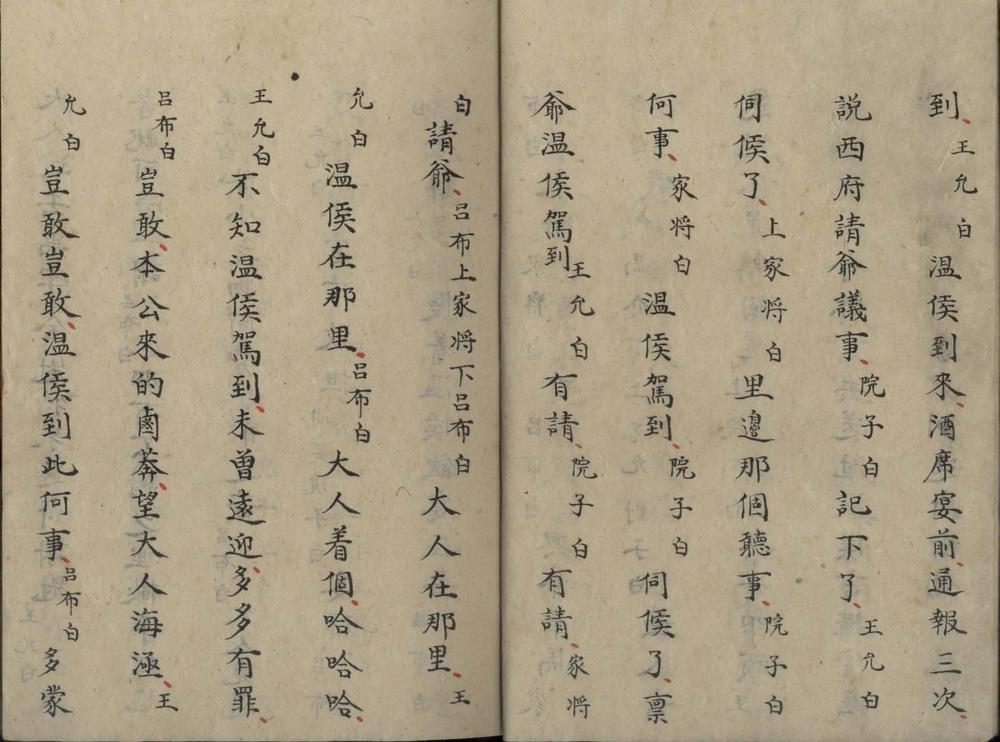 到王允白溫侯到來酒席宴前通報三次
說西府請爺議事院子白記下了王允白
伺候了上家将白里邊那個聽事院子白
何事家将白溫侯駕到院子白伺候了禀
爺溫侯駕到王允白有請院子白有請家将
白請爺呂布上家将下呂布白大人在那里王
允白溫侯在那里呂布白大人着個哈哈哈
王允白不知溫侯駕到未曾遠迎多多有罪
呂布白豈敢本公來的鹵莽望大人海涵王
允白豈敢豈敢溫侯到此何事呂布白多蒙